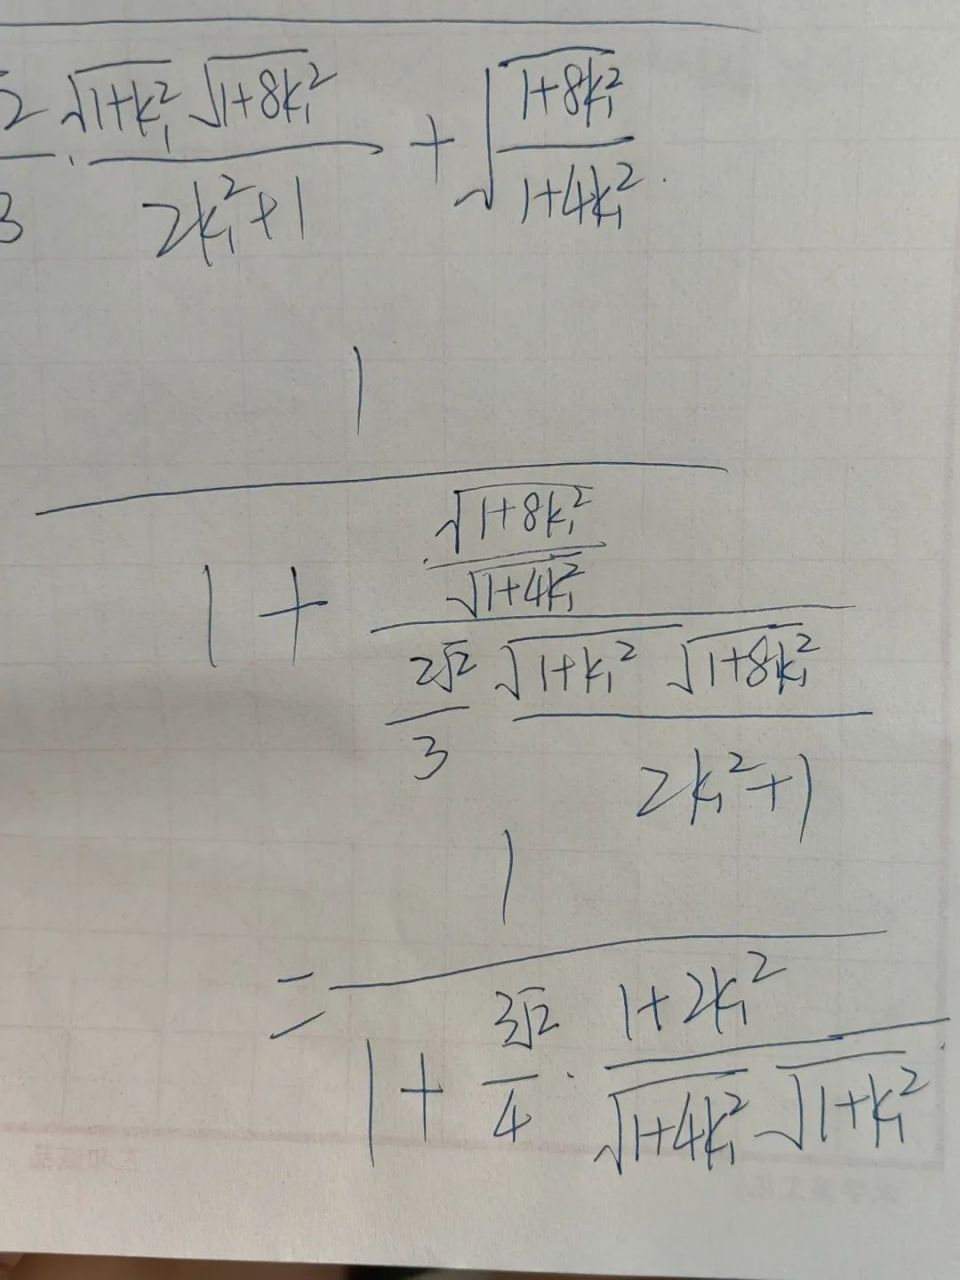 2/3 · √(1+k₁²) √(1+8k₁²) / (2k₁²+1) + √((1+8k₁²)/(1+4k₁²)) .
1 / (1 + (√(1+8k₁²) / √(1+4k₁²)) / ((2√2/3) √(1+k₁²) √(1+8k₁²) / (2k₁²+1)))
= 1 / (1 + (3√2/4) · (1+2k₁²) / (√(1+4k₁²) √(1+k₁²))) .